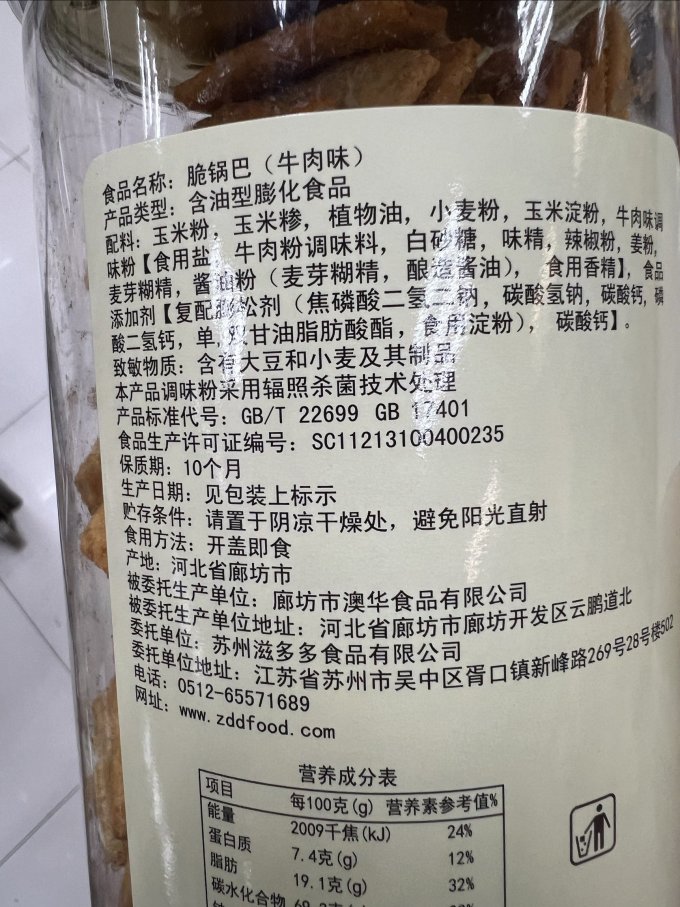 食品名称：脆锅巴（牛肉味）
产品类型：含油型膨化食品
配料：玉米粉，玉米糁，植物油，小麦粉，玉米淀粉，牛肉味调
味粉【食用盐，牛肉粉调味料，白砂糖，味精，辣椒粉，姜粉，
麦芽糊精，酱油粉（麦芽糊精，酿造酱油），食用香精】，食品
添加剂【复配膨松剂（焦磷酸二氢二钠，碳酸氢钠，碳酸钙，磷
酸二氢钙，单，双甘油脂肪酸酯，食用淀粉），碳酸钙】。
致敏物质：含有大豆和小麦及其制品
本产品调味粉采用辐照杀菌技术处理
产品标准代号：GB/T 22699 GB 17401
食品生产许可证编号：SC11213100400235
保质期：10个月
生产日期：见包装上标示
贮存条件：请置于阴凉干燥处，避免阳光直射
食用方法：开盖即食
产地：河北省廊坊市
被委托生产单位：廊坊市澳华食品有限公司
被委托生产单位地址：河北省廊坊市廊坊开发区云鹏道北
委托单位：苏州滋多多食品有限公司
委托单位地址：江苏省苏州市吴中区胥口镇新峰路269号28号楼502
电话：0512-65571689
网址：www.zddfood.com
营养成分表
项目 每100克(g) 营养素参考值%
能量 2009千焦(kJ) 24%
蛋白质 7.4克(g) 12%
脂肪 19.1克(g) 32%
碳水化合物